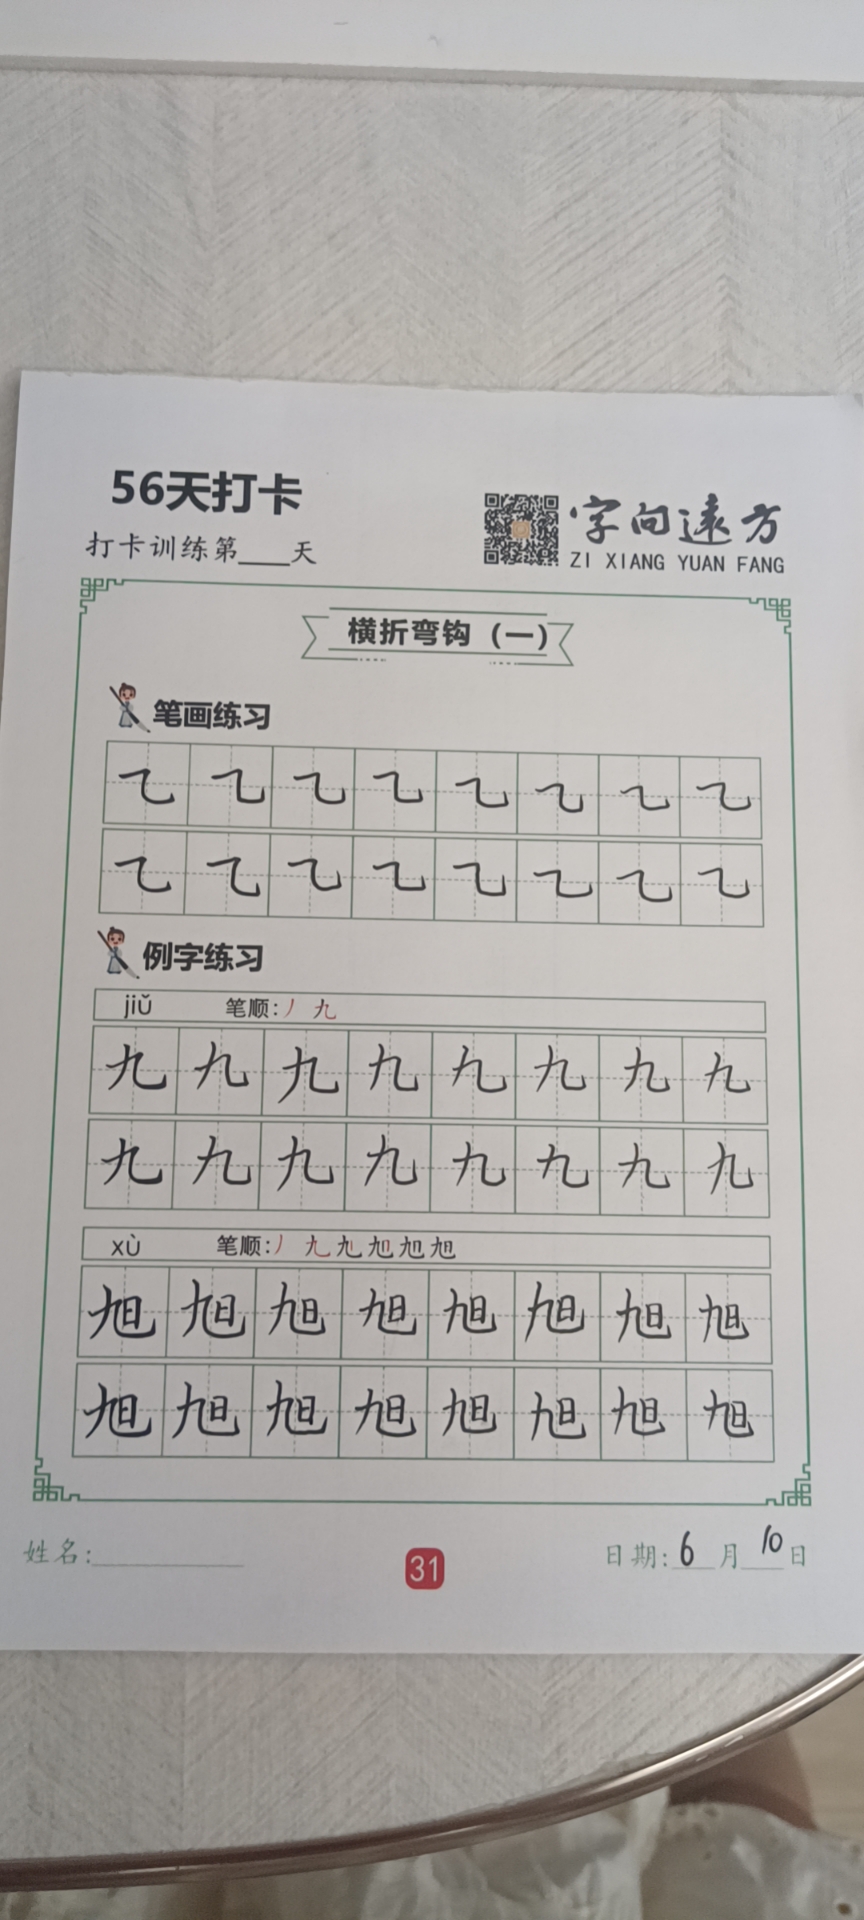 56天打卡
字向远方
打卡训练第____天
ZI XIANG YUAN FANG
横折弯钩（一）
笔画练习
乙 乙 乙 乙 乙 乙 乙 乙
乙 乙 乙 乙 乙 乙 乙 乙
例字练习
jiǔ 笔顺:丿 九
九 九 九 九 九 九 九 九
九 九 九 九 九 九 九 九
xù 笔顺:丿 九 旭 旭 旭 旭
旭 旭 旭 旭 旭 旭 旭 旭
旭 旭 旭 旭 旭 旭 旭 旭
姓名:__________ 31 日期: 6 月 10 日